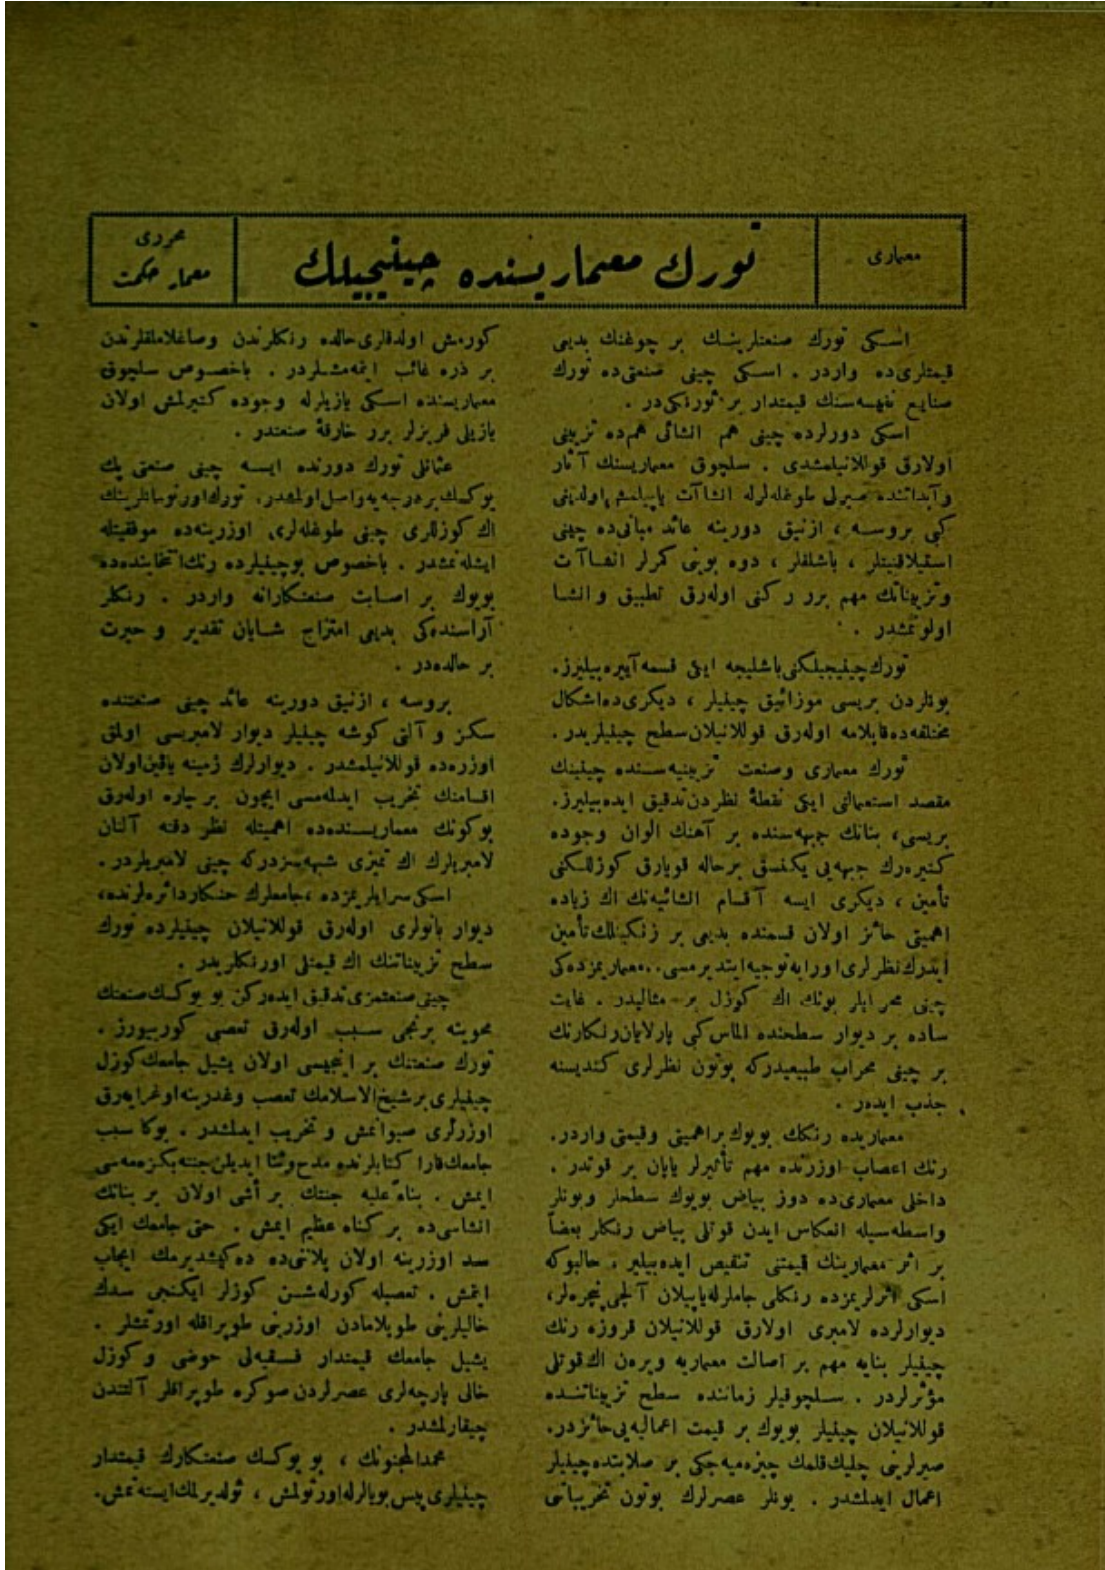 معماری
تورك معماریسنده چینیجیلك
محرری
معمار حكمت
اسكی تورك صنعتلرینك بر چوغنك بدیعی
قیمتلری‌ده واردر . اسكی چینی صنعتی‌ده تورك
صنایع نفیسه‌سنك قیمتدار بر ئورنكی‌در .
اسكی دورلرده چینی هم انشائی هم‌ده تزیینی
اولارق قوللانیلمشدی . سلچوق معماریسنك آثار
وآبداتنده صیرلی طوغله‌لرله انشاآت یاپیلمش اولدیغی
كبی بروسه ، ازنیق دورینه عائد مبانی‌ده چینی
استیلاقتیتلر ، باشلقلر ، دوه بوینی كمرلر انشاآت
وتزییناتك مهم برر ركنی اوله‌رق تطبیق و انشا
اولونمشدر .
تورك چینیجیلكنی باشلیجه ایكی قسمه آییره بیلیرز.
بونلردن بریسی موزائیق چینیلر ، دیكری‌ده اشكال
مختلفه‌ده قاپلامه اوله‌رق قوللانیلان سطح چینیلریدر .
تورك معماری وصنعت تزیینیه‌سنده چینینك
مقصد استعمالنی ایكی نقطۀ نظردن تدقیق ایده‌بیلیرز.
بریسی، بنانك جبهه‌سنده بر آهنك الوان وجوده
كتیره‌رك جبهه‌یی یكنسق بر حاله قویارق كوزللكنی
تأمین ، دیكری ایسه آقسام انشائیه‌نك اك زیاده
اهمیتی حائز اولان قسمنده بدیعی بر زنكینلك تأمین
ایدرك نظرلری اورایه توجیه ایتدیرمسی.. معماریمزده‌كی
چینی محرابلر بونك اك كوزل بر مثالیدر . غایت
ساده بر دیوار سطحنده الماس كبی پارلایان رنكارنك
بر چینی محراب طبیعیدركه بوتون نظرلری كندیسنه
جذب ایده‌ر .
معماریده رنكك بویوك بر اهمیتی وقیمتی واردر.
رنك اعصاب اوزرنده مهم تأثیرلر یاپان بر قوتدر .
داخلی معماری‌ده دوز بیاض بویوك سطحلر وبونلر
واسطه‌سیله انعكاس ایدن قوتلی بیاض رنكلر بعضاً
بر اثر معمارینك قیمتنی تنقیص ایده‌بیلیر . حالبوكه
اسكی اثرلریمزده رنكلی جاملرله یاپیلان آلچی پنجره‌لر،
دیوارلرده لامبری اولارق قوللانیلان فروزه رنك
چینیلر بنایه مهم بر اصالت معماریه ویره‌ن اك قوتلی
مؤثرلردر . سلچوقیلر زماننده سطح تزییناتنده
قوللانیلان چینیلر بویوك بر قیمت اعمالیه‌یی حائزدر.
صیرلرینی چلیك قلمك چیزه‌میه‌جكی بر صلابتده چینیلر
اعمال ایدلمشدر . بونلر عصرلرك بوتون تخریباتی
كورمش اولدقلری حالده رنكلرندن وصاغلاملقلرندن
بر ذره غائب ایتمه‌مشلردر . باخصوص سلچوق
معماریسنده اسكی یازیلرله وجوده كتیرلمش اولان
یازیلی فریزلر برر خارقۀ صنعتدر .
عثمانلی تورك دورنده ایسه چینی صنعتی پك
یوكسك بر درجه‌یه واصل اولمشدر. تورك اورنومانلرینك
اك كوزللری چینی طوغله‌لری اوزرینه‌ده موفقیتله
ایشله‌نمشدر . باخصوص بو چینیلرده رنك انتخابنده‌ده
بویوك بر اصابت صنعتكارانه واردر . رنكلر
آراسنده‌كی بدیعی امتزاج شایان تقدیر و حیرت
بر حالده‌در .
بروسه ، ازنیق دورینه عائد چینی صنعتنده
سكز و آلتی كوشه چینیلر دیوار لامبریسی اولمق
اوزره‌ده قوللانیلمشدر . دیوارلرك زمینه یاقین اولان
اقسامنك تخریب ایدلمه‌مسی ایچون بر چاره اوله‌رق
بوكونك معماریسنده‌ده اهمیتله نظر دقته آلنان
لامبریلرك اك تمیزی شبهه‌سزدركه چینی لامبریلردر .
اسكی سرایلریمزده ، جامعلرك حنكار دائره‌لرنده،
دیوار پانولری اوله‌رق قوللانیلان چینیلرده تورك
سطح تزییناتنك اك قیمتلی اورنكلریدر .
چینی صنعتمزی تدقیق ایده‌ركن بو یوكسك صنعتك
محوینه برنجی سبب اوله‌رق تعصبی كورییورز .
تورك صنعتنك بر انجیسی اولان یشیل جامعك كوزل
چینیلری بر شیخ‌الاسلامك تعصب وغدرینه اوغرایه‌رق
اوزرلری صیوانمش و تخریب ایدلمشدر . بوكا سبب
جامعك قارا كتابلرنده مدح وثنا ایدیلن جنته بكزه‌مه‌سی
ایمش . بناءً علیه جنتك بر أشی اولان بر بنانك
انشاسی‌ده بر كناه عظیم ایمش . حتی جامعك ایكی
سد اوزرینه اولان پلاننی‌ده ده‌كیشدیرمك ایجاب
ایتمش . تعصبله كورله‌شن كوزلر ایكنجی سدك
خالیلرینی طوپلامادن اوزرینی طوپراقله اورتمشلر .
یشیل جامعك قیمتدار فسقیه‌لی حوضی و كوزل
خالی پارچه‌لری عصرلردن صوكره طوپراقلر آلتندن
چیقارلمشدر .
محمدالمجنونك ، بو یوكسك صنعتكارك قیمتدار
چینیلری پیس بویالرله اورتولمش ، ئولدیرلمك ایسته‌نمش.